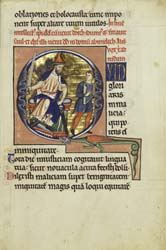 oblationes et holocausta tunc impo
nent super altare tuum vitulos
UID
glori
aris in
malicia
qui po
tens es
in iniquitate
Tota die iniusticiam cogitauit lingua
tua sicut nouacula acuta fecisti dolū
Dilexisti maliciam super benignitatem
iniquitatem magis quā loqui equitatem